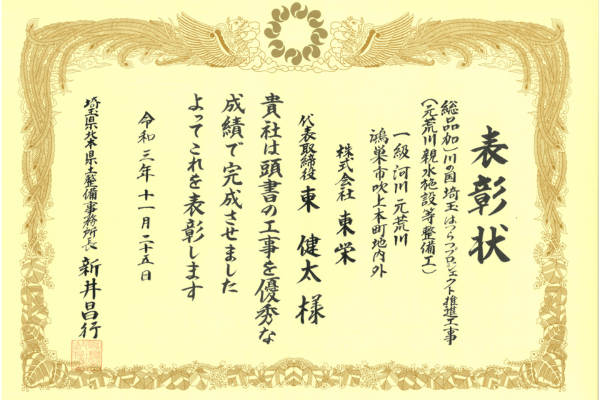 表彰状
総品加)川の国埼玉はつらつプロジェクト推進工事
(元荒川親水施設等整備工)
一級河川元荒川
鴻巣市吹上本町地内外
株式会社 東栄
代表取締役 東 健太 様
貴社は頭書の工事を優秀な
成績で完成させました
よってこれを表彰します
令和三年十一月二十五日
埼玉県北本県土整備事務所長 新井昌行